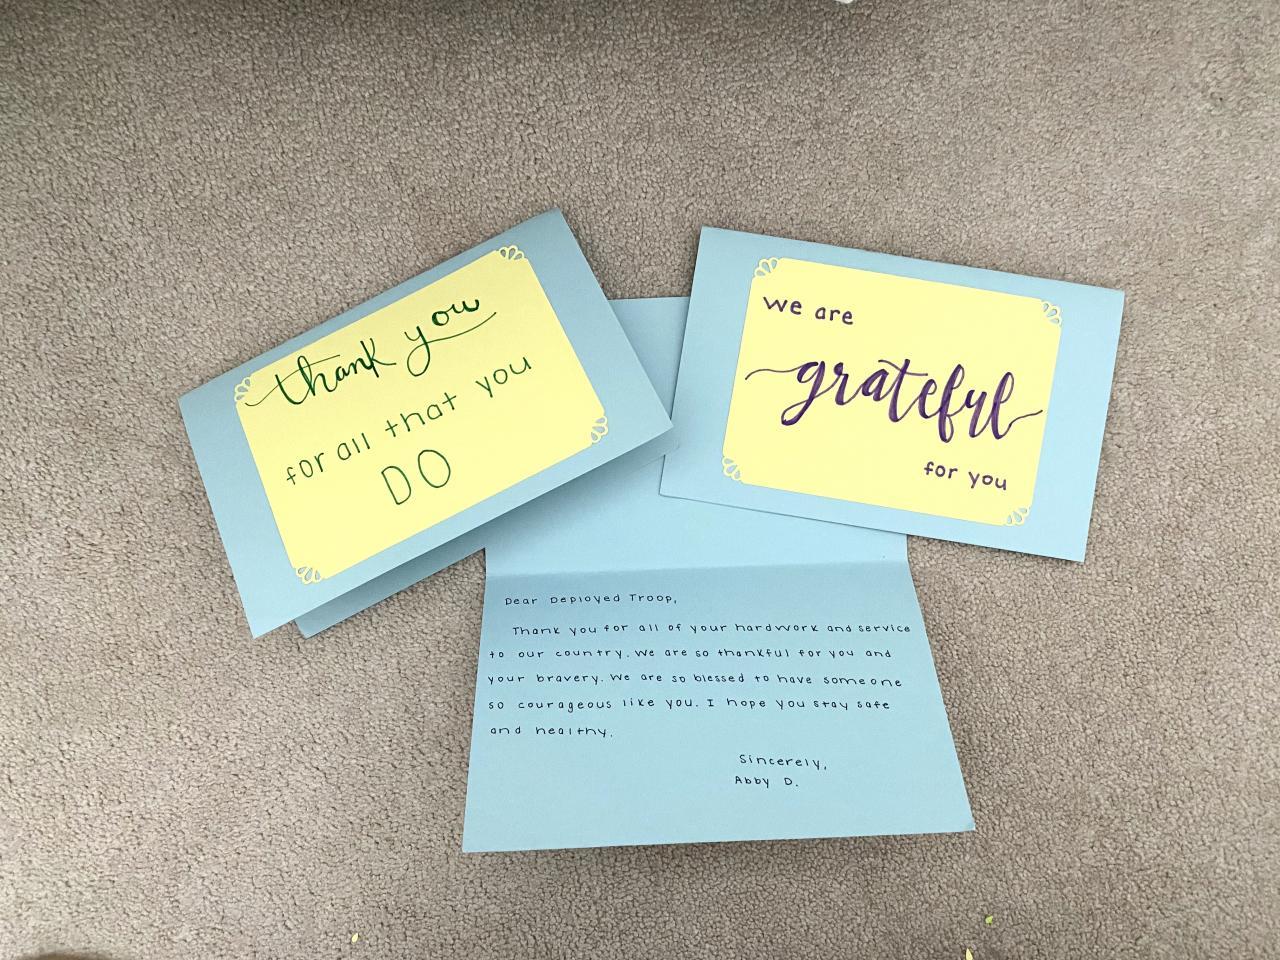 thank you
for all that you
DO
we are
grateful
for you
Dear Deployed Troop,
Thank you for all of your hardwork and service
to our country. We are so thankful for you and
your bravery. We are so blessed to have someone
so courageous like you. I hope you stay safe
and healthy.
Sincerely,
Abby D.